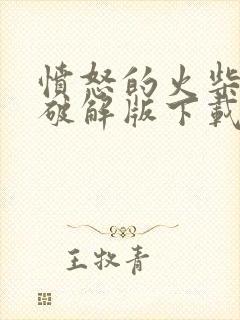 憤怒的火柴
破解版下載
王牧青